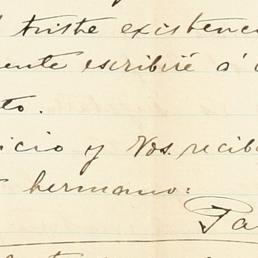 triste existenc
ente escribiré á
to.
icio y Vos. recib
hermano:
Pa